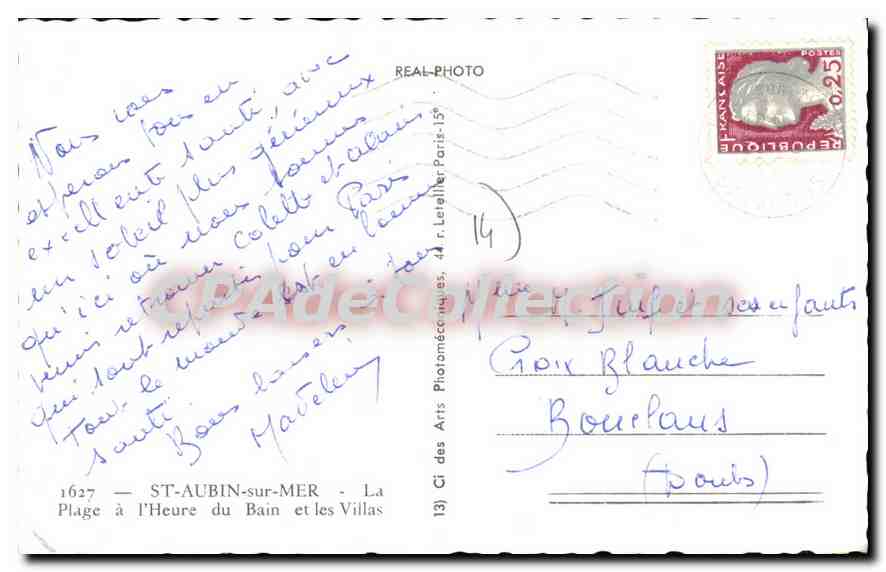 REAL-PHOTO
Nous vous
espérons tous en
excellente santé, avec
un soleil plus généreux
qu'ici où nous sommes
venus retrouver Colette et Alain
qui sont repartis pour Paris
Tout le monde est en bonne
santé.
Bons baisers à tous
Madeleine
1627 — ST-AUBIN-sur-MER - La
Plage à l'Heure du Bain et les Villas
13) Ci des Arts Photomécaniques, 44, r. Letellier Paris-15e
REPUBLIQUE FRANÇAISE
POSTES
0,25
14
Mme M. et ses enfants
Croix Blanche
Bouclans
(Doubs)
CPAdeCollection.com